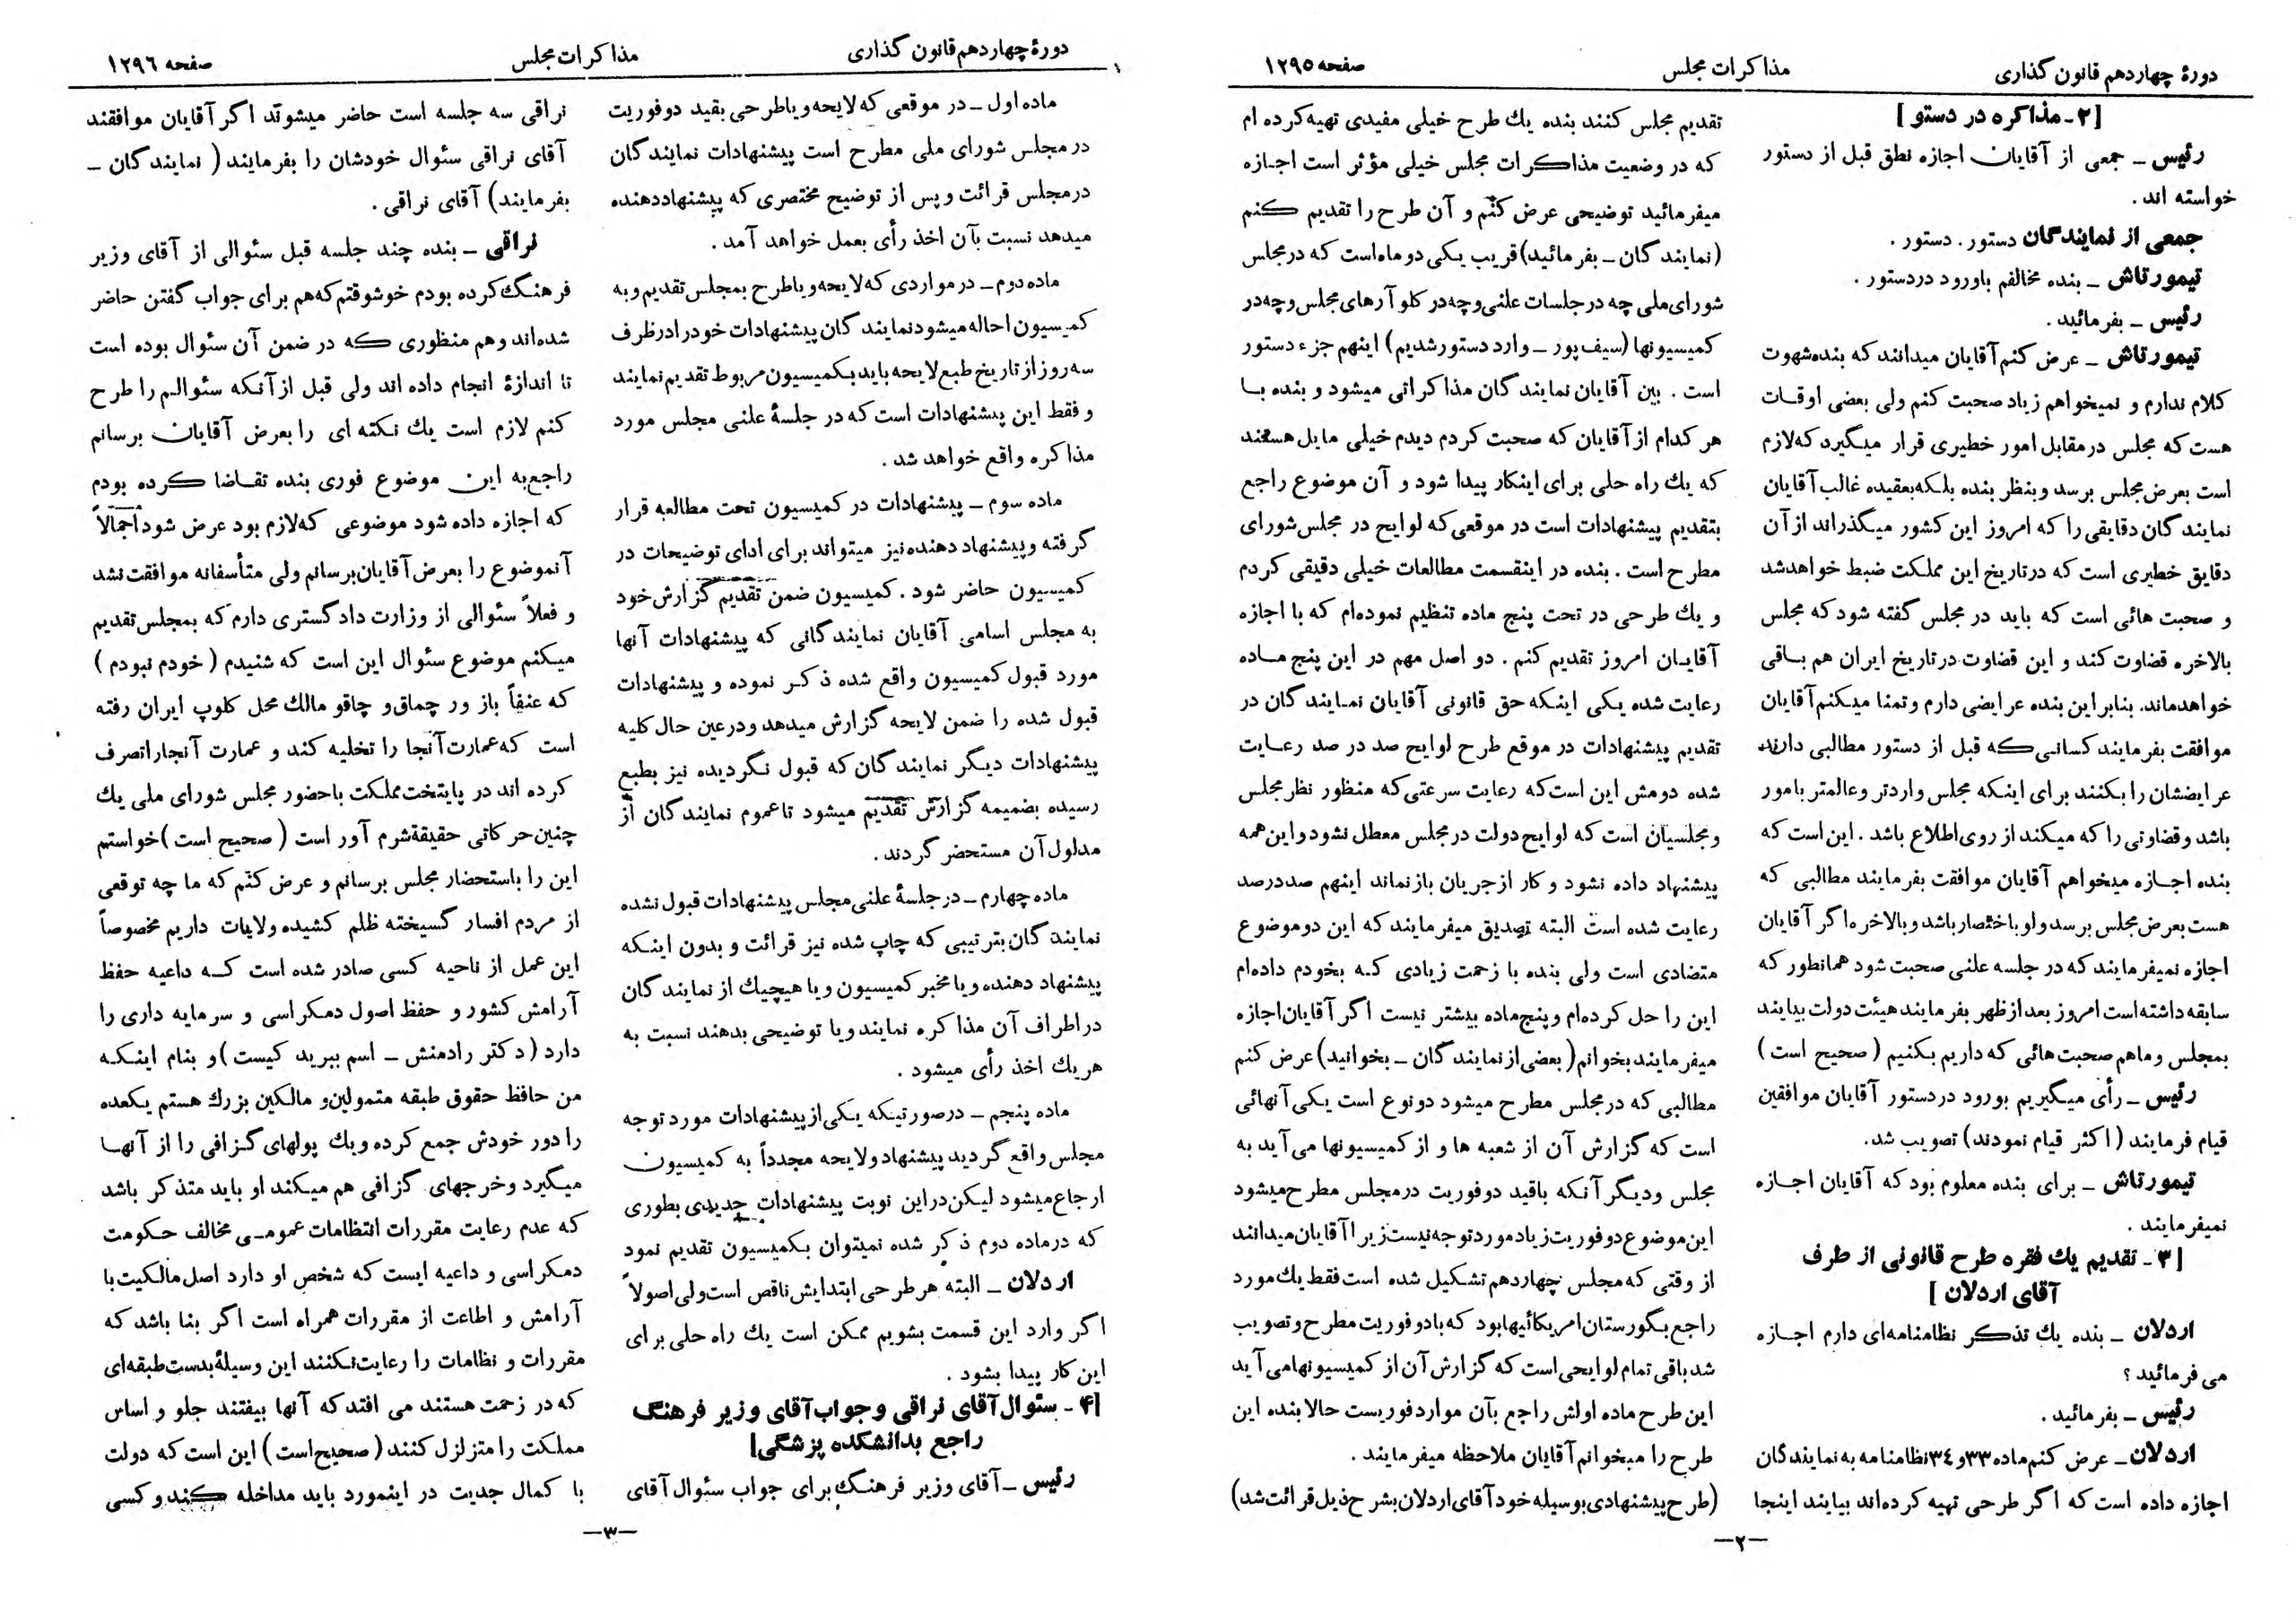 دورهٔ چهاردهم قانون گذاری
مذاکرات مجلس
صفحه ۱۲۹۵
[۲- مذاکره در دستو]
رئیس ــ جمعی از آقایان اجازه نطق قبل از دستور
خواسته اند.
جمعی از نمایندگان دستور. دستور.
تیمورتاش ــ بنده مخالفم باورود دردستور.
رئیس ــ بفرمائید.
تیمورتاش ــ عرض کنم آقایان میدانند که بنده شهوت
کلام ندارم و نمیخواهم زیاد صحبت کنم ولی بعضی اوقات
هست که مجلس درمقابل امور خطیری قرار میگیرد که لازم
است بعرض مجلس برسد و بنظر بنده بلکه بعقیده غالب آقایان
نمایندگان دقایقی را که امروز این کشور میگذراند از آن
دقایق خطیری است که درتاریخ این مملکت ضبط خواهد شد
و صحبت هائی است که باید در مجلس گفته شود که مجلس
بالاخره قضاوت کند و این قضاوت درتاریخ ایران هم باقی
خواهد ماند. بنابراین بنده عرایضی دارم و تمنا میکنم آقایان
موافقت بفرمایند کسانی که قبل از دستور مطالبی دارند
عرایضشان را بکنند برای اینکه مجلس واردتر و عالمتر بامور
باشد و قضاوتی را که میکند از روی اطلاع باشد. این است که
بنده اجازه میخواهم آقایان موافقت بفرمایند مطالبی که
هست بعرض مجلس برسد ولو باختصار باشد و بالاخره اگر آقایان
اجازه نمیفرمایند که در جلسه علنی صحبت شود همانطور که
سابقه داشته است امروز بعد از ظهر بفرمایند هیئت دولت بیایند
بمجلس و ماهم صحبت هائی که داریم بکنیم (صحیح است)
رئیس ــ رأی میگیریم بورود دردستور آقایان موافقین
قیام فرمایند (اکثر قیام نمودند) تصویب شد.
تیمورتاش ــ برای بنده معلوم بود که آقایان اجازه
نمیفرمایند.
[۳- تقدیم یك فقره طرح قانونی از طرف
آقای اردلان]
اردلان ــ بنده یك تذکر نظامنامه‌ای دارم اجازه
می فرمائید؟
رئیس ــ بفرمائید.
اردلان ــ عرض کنم ماده ۳۳ و ۳۴ نظامنامه به نمایندگان
اجازه داده است که اگر طرحی تهیه کرده‌اند بیایند اینجا
تقدیم مجلس کنند بنده یك طرح خیلی مفیدی تهیه کرده ام
که در وضعیت مذاکرات مجلس خیلی مؤثر است اجازه
میفرمائید توضیحی عرض کنم و آن طرح را تقدیم کنم
(نمایندگان ــ بفرمائید) قریب یکی دو ماه است که درمجلس
شورای ملی چه در جلسات علنی و چه در کلوآرهای مجلس و چه در
کمیسیونها (سیف پور ــ وارد دستور شدیم) اینهم جزء دستور
است. بین آقایان نمایندگان مذاکراتی میشود و بنده با
هر کدام از آقایان که صحبت کردم دیدم خیلی مایل هستند
که یك راه حلی برای اینکار پیدا شود و آن موضوع راجع
بتقدیم پیشنهادات است در موقعی که لوایح در مجلس شورای
مطرح است. بنده در اینقسمت مطالعات خیلی دقیقی کردم
و یك طرحی در تحت پنج ماده تنظیم نموده‌ام که با اجازه
آقایان امروز تقدیم کنم. دو اصل مهم در این پنج ماده
رعایت شده یکی اینکه حق قانونی آقایان نمایندگان در
تقدیم پیشنهادات در موقع طرح لوایح صد در صد رعایت
شده دومش این است که رعایت سرعتی که منظور نظر مجلس
و مجلسیان است که لوایح دولت در مجلس معطل نشود و این همه
پیشنهاد داده نشود و کار از جریان باز نماند اینهم صد درصد
رعایت شده است البته تصدیق میفرمایند که این دو موضوع
متضادی است ولی بنده با زحمت زیادی که بخودم داده‌ام
این را حل کرده‌ام و پنج ماده بیشتر نیست اگر آقایان اجازه
میفرمایند بخوانم (بعضی از نمایندگان ــ بخوانید) عرض کنم
مطالبی که در مجلس مطرح میشود دو نوع است یکی آنهائی
است که گزارش آن از شعبه ها و از کمیسیونها می آید به
مجلس و دیگر آنکه باقید دو فوریت در مجلس مطرح میشود
این موضوع دو فوریت زیاد مورد توجه نیست زیرا آقایان میدانند
از وقتی که مجلس چهاردهم تشکیل شده است فقط یك مورد
راجع بگورستان امریکائیها بود که بادو فوریت مطرح و تصویب
شد باقی تمام لوایحی است که گزارش آن از کمیسیونها می آید
این طرح ماده اولش راجع بآن موارد فوریست حالا بنده این
طرح را میخوانم آقایان ملاحظه میفرمایند.
(طرح پیشنهادی بوسیله خود آقای اردلان بشرح ذیل قرائت شد)
—۲—
دورهٔ چهاردهم قانون گذاری
مذاکرات مجلس
صفحه ۱۲۹۶
ماده اول ــ در موقعی که لایحه و یا طرحی بقید دو فوریت
در مجلس شورای ملی مطرح است پیشنهادات نمایندگان
درمجلس قرائت و پس از توضیح مختصری که پیشنهاد دهنده
میدهد نسبت بآن اخذ رأی بعمل خواهد آمد.
ماده دوم ــ در مواردی که لایحه و یا طرح بمجلس تقدیم و به
کمیسیون احاله میشود نمایندگان پیشنهادات خود را در ظرف
سه روز از تاریخ طبع لایحه باید بکمیسیون مربوط تقدیم نمایند
و فقط این پیشنهادات است که در جلسهٔ علنی مجلس مورد
مذاکره واقع خواهد شد.
ماده سوم ــ پیشنهادات در کمیسیون تحت مطالعه قرار
گرفته و پیشنهاد دهنده نیز میتواند برای ادای توضیحات در
کمیسیون حاضر شود. کمیسیون ضمن تقدیم گزارش خود
به مجلس اسامی آقایان نمایندگانی که پیشنهادات آنها
مورد قبول کمیسیون واقع شده ذکر نموده و پیشنهادات
قبول شده را ضمن لایحه گزارش میدهد و درعین حال کلیه
پیشنهادات دیگر نمایندگان که قبول نگردیده نیز بطبع
رسیده بضمیمه گزارش تقدیم میشود تا عموم نمایندگان از
مدلول آن مستحضر گردند.
ماده چهارم ــ در جلسهٔ علنی مجلس پیشنهادات قبول نشده
نمایندگان بترتیبی که چاپ شده نیز قرائت و بدون اینکه
پیشنهاد دهنده و یا مخبر کمیسیون و یا هیچیك از نمایندگان
در اطراف آن مذاکره نمایند و یا توضیحی بدهند نسبت به
هر یك اخذ رأی میشود.
ماده پنجم ــ درصورتیکه یکی از پیشنهادات مورد توجه
مجلس واقع گردید پیشنهاد و لایحه مجدداً به کمیسیون
ارجاع میشود لیکن در این نوبت پیشنهادات جدیدی بطوری
که درماده دوم ذکر شده نمیتوان بکمیسیون تقدیم نمود
اردلان ــ البته هر طرحی ابتدایش ناقص است ولی اصولاً
اگر وارد این قسمت بشویم ممکن است یك راه حلی برای
این کار پیدا بشود.
[۴- سئوال آقای نراقی و جواب آقای وزیر فرهنگ
راجع بدانشکده پزشگی]
رئیس ــ آقای وزیر فرهنگ برای جواب سئوال آقای
نراقی سه جلسه است حاضر میشوند اگر آقایان موافقند
آقای نراقی سئوال خودشان را بفرمایند (نمایندگان ــ
بفرمایند) آقای نراقی.
نراقی ــ بنده چند جلسه قبل سئوالی از آقای وزیر
فرهنگ کرده بودم خوشوقتم که هم برای جواب گفتن حاضر
شده‌اند و هم منظوری که در ضمن آن سئوال بوده است
تا اندازهٔ انجام داده اند ولی قبل از آنکه سئوالم را طرح
کنم لازم است یك نکته ای را بعرض آقایان برسانم
راجع به این موضوع فوری بنده تقاضا کرده بودم
که اجازه داده شود موضوعی که لازم بود عرض شود اجمالاً
آنموضوع را بعرض آقایان برسانم ولی متأسفانه موافقت نشد
و فعلاً سئوالی از وزارت دادگستری دارم که بمجلس تقدیم
میکنم موضوع سئوال این است که شنیدم (خودم نبودم)
که عنفاً باز ور چماق و چاقو مالك محل کلوپ ایران رفته
است که عمارت آنجا را تخلیه کند و عمارت آنجا را تصرف
کرده اند در پایتخت مملکت باحضور مجلس شورای ملی یك
چنین حرکاتی حقیقة شرم آور است (صحیح است) خواستم
این را باستحضار مجلس برسانم و عرض کنم که ما چه توقعی
از مردم افسار گسیخته ظلم کشیده ولایات داریم مخصوصاً
این عمل از ناحیه کسی صادر شده است که داعیه حفظ
آرامش کشور و حفظ اصول دمکراسی و سرمایه داری را
دارد (دکتر رادمنش ــ اسم ببرید کیست) و بنام اینکه
من حافظ حقوق طبقه متمولین و مالکین بزرك هستم یکعده
را دور خودش جمع کرده ویك پولهای گزافی را از آنها
میگیرد و خرجهای گزافی هم میکند او باید متذکر باشد
که عدم رعایت مقررات انتظامات عمومی مخالف حکومت
دمکراسی و داعیه ایست که شخص او دارد اصل مالکیت با
آرامش و اطاعت از مقررات همراه است اگر بنا باشد که
مقررات و نظامات را رعایت نکنند این وسیلهٔ بدست طبقه‌ای
که در زحمت هستند می افتد که آنها بیفتند جلو و اساس
مملکت را متزلزل کنند (صحیح است) این است که دولت
با کمال جدیت در اینمورد باید مداخله کند و کسی
—۳—